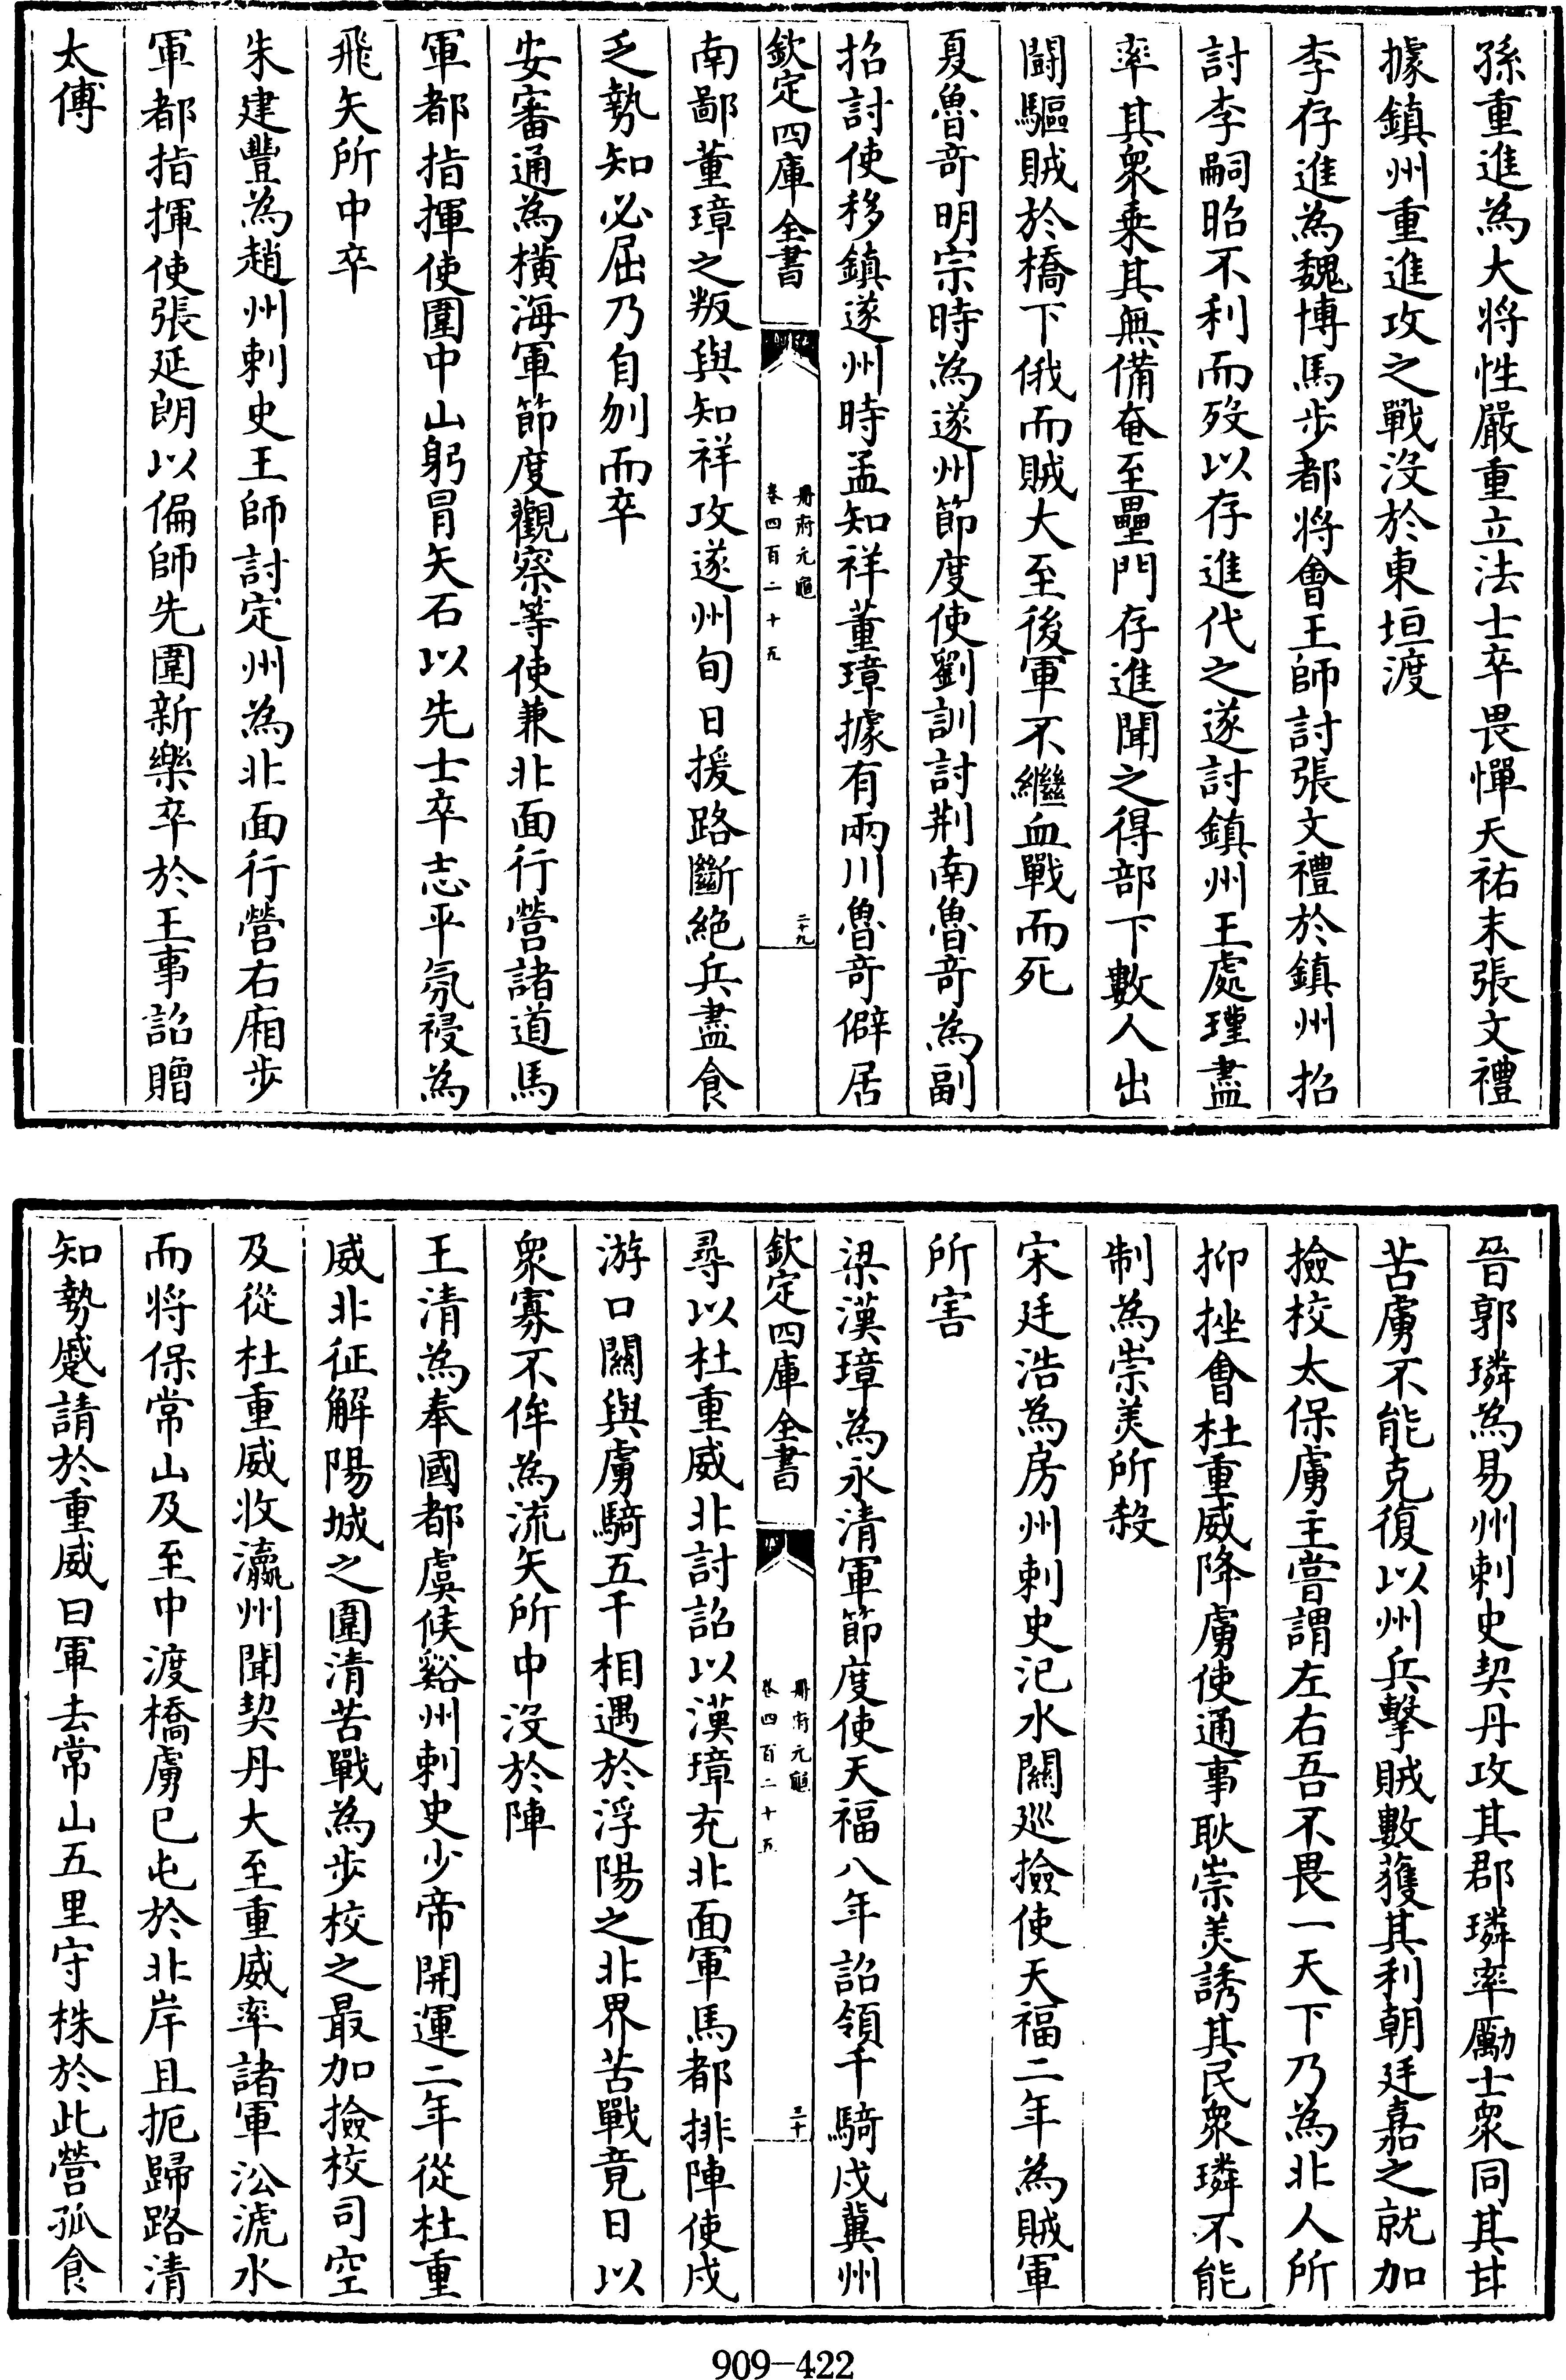 孫重進為大將性嚴重立法士卒畏憚天祐末張文禮
據鎮州重進攻之戰沒於東垣渡
李存進為魏博馬步都將會王師討張文禮於鎮州招
討李嗣昭不利而歿以存進代之遂討鎮州王處瑾盡
率其衆乗其無備奄至壘門存進聞之得部下數人出
鬪驅賊於橋下俄而賊大至後軍不繼血戰而死
夏魯竒明宗時為遂州節度使劉訓討荆南魯竒為副
招討使移鎮遂州時孟知祥董璋據有兩川魯竒僻居
欽定四庫全書
冊府元龜
卷四百二十五
二十九
南鄙董璋之叛與知祥攻遂州旬日援路斷絶兵盡食
乏勢知必屈乃自刎而卒
安審通為橫海軍節度觀察等使兼北面行營諸道馬
軍都指揮使圍中山躬冒矢石以先士卒志平氛祲為
飛矢所中卒
朱建豐為趙州刺史王師討定州為北面行營右廂步
軍都指揮使張延朗以偏師先圍新樂卒於王事詔贈
太傅
晉郭璘為易州刺史契丹攻其郡璘率勵士衆同其甘
苦虜不能克復以州兵擊賊數獲其利朝廷嘉之就加
撿校太保虜主嘗謂左右吾不畏一天下乃為北人所
抑挫會杜重威降虜使通事耿崇美誘其民衆璘不能
制為崇美所殺
宋廷浩為房州刺史汜水關巡撿使天福二年為賊軍
所害
梁漢璋為永清軍節度使天福八年詔領千騎戍冀州
欽定四庫全書
冊府元龜
卷四百二十五
三十
尋以杜重威北討詔以漢璋充北面軍馬都排陣使戍
游口關與虜騎五千相遇於浮陽之北界苦戰竟日以
衆寡不侔為流矢所中沒於陣
王清為奉國都虞候谿州刺史少帝開運二年從杜重
威北征解陽城之圍清苦戰為步校之最加撿校司空
及從杜重威收瀛州聞契丹大至重威率諸軍㳂滹水
而將保常山及至中渡橋虜已屯於北岸且扼歸路清
知勢蹙請於重威曰軍去常山五里守株於此營孤食
909-422